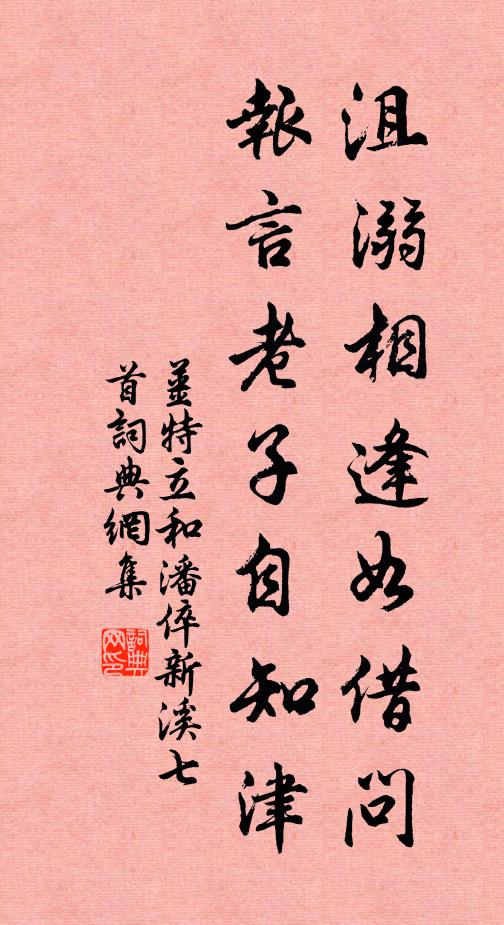 沮溺相逢如借問
報言老子自知津
姜特立和潘倅新溪七
首詞典網集
詞典网印